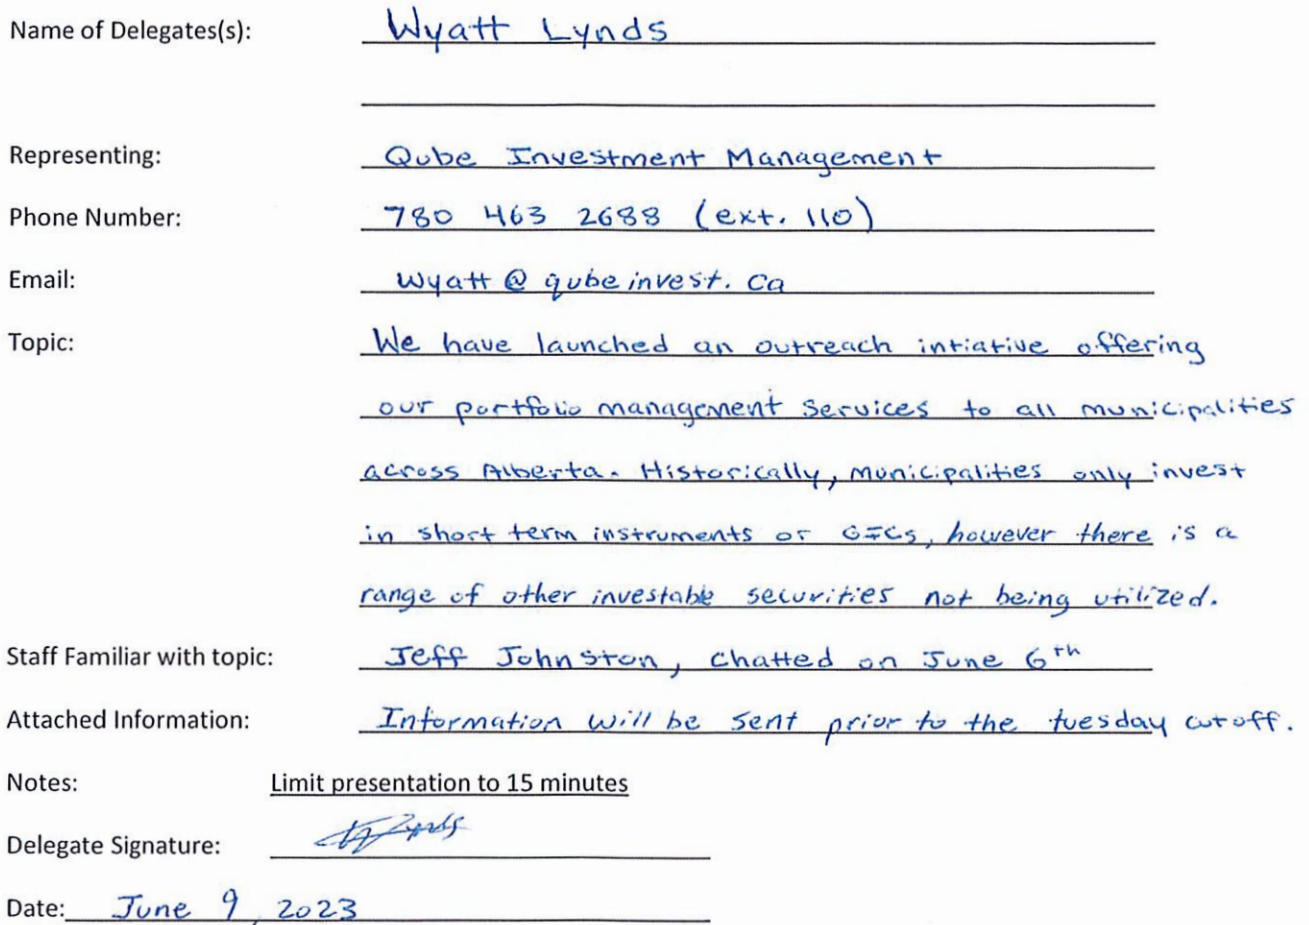 Name of Delegates(s): Wyatt Lynds
Representing: Qube Investment Management
Phone Number: 780 463 2688 (ext. 110)
Email: Wyatt@qubeinvest.ca
Topic: We have launched an outreach intiative offering
our portfolio management services to all municipalities
across Alberta. Historically, municipalities only invest
in short term instruments or GICs, however there is a
range of other investable securities not being utilized.
Staff Familiar with topic: Jeff Johnston, chatted on June 6th
Attached Information: Information will be sent prior to the tuesday cutoff.
Notes: Limit presentation to 15 minutes
Delegate Signature:
Date: June 9, 2023